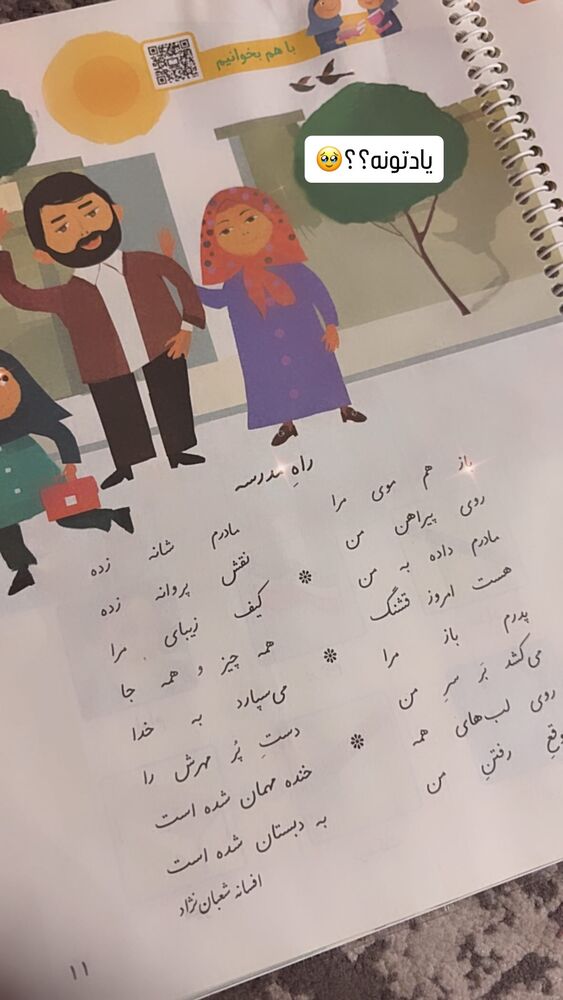 با هم بخوانیم
یادتونه؟؟🥹
راهِ مدرسه
باز هم موی مرا مادرم شانه زده
روی پیراهن من نقش پروانه زده
مادرم داده به من کیف زیبای مرا
هست امروز قشنگ همه چیز و همه جا
پدرم باز مرا می‌سپارد به خدا
می‌کشد بَر سرِ من دستِ پُر مهرش را
روی لب‌های همه خنده مهمان شده است
وقعِ رفتنِ من به دبستان شده است
افسانه شعبان‌نژاد
۱۱